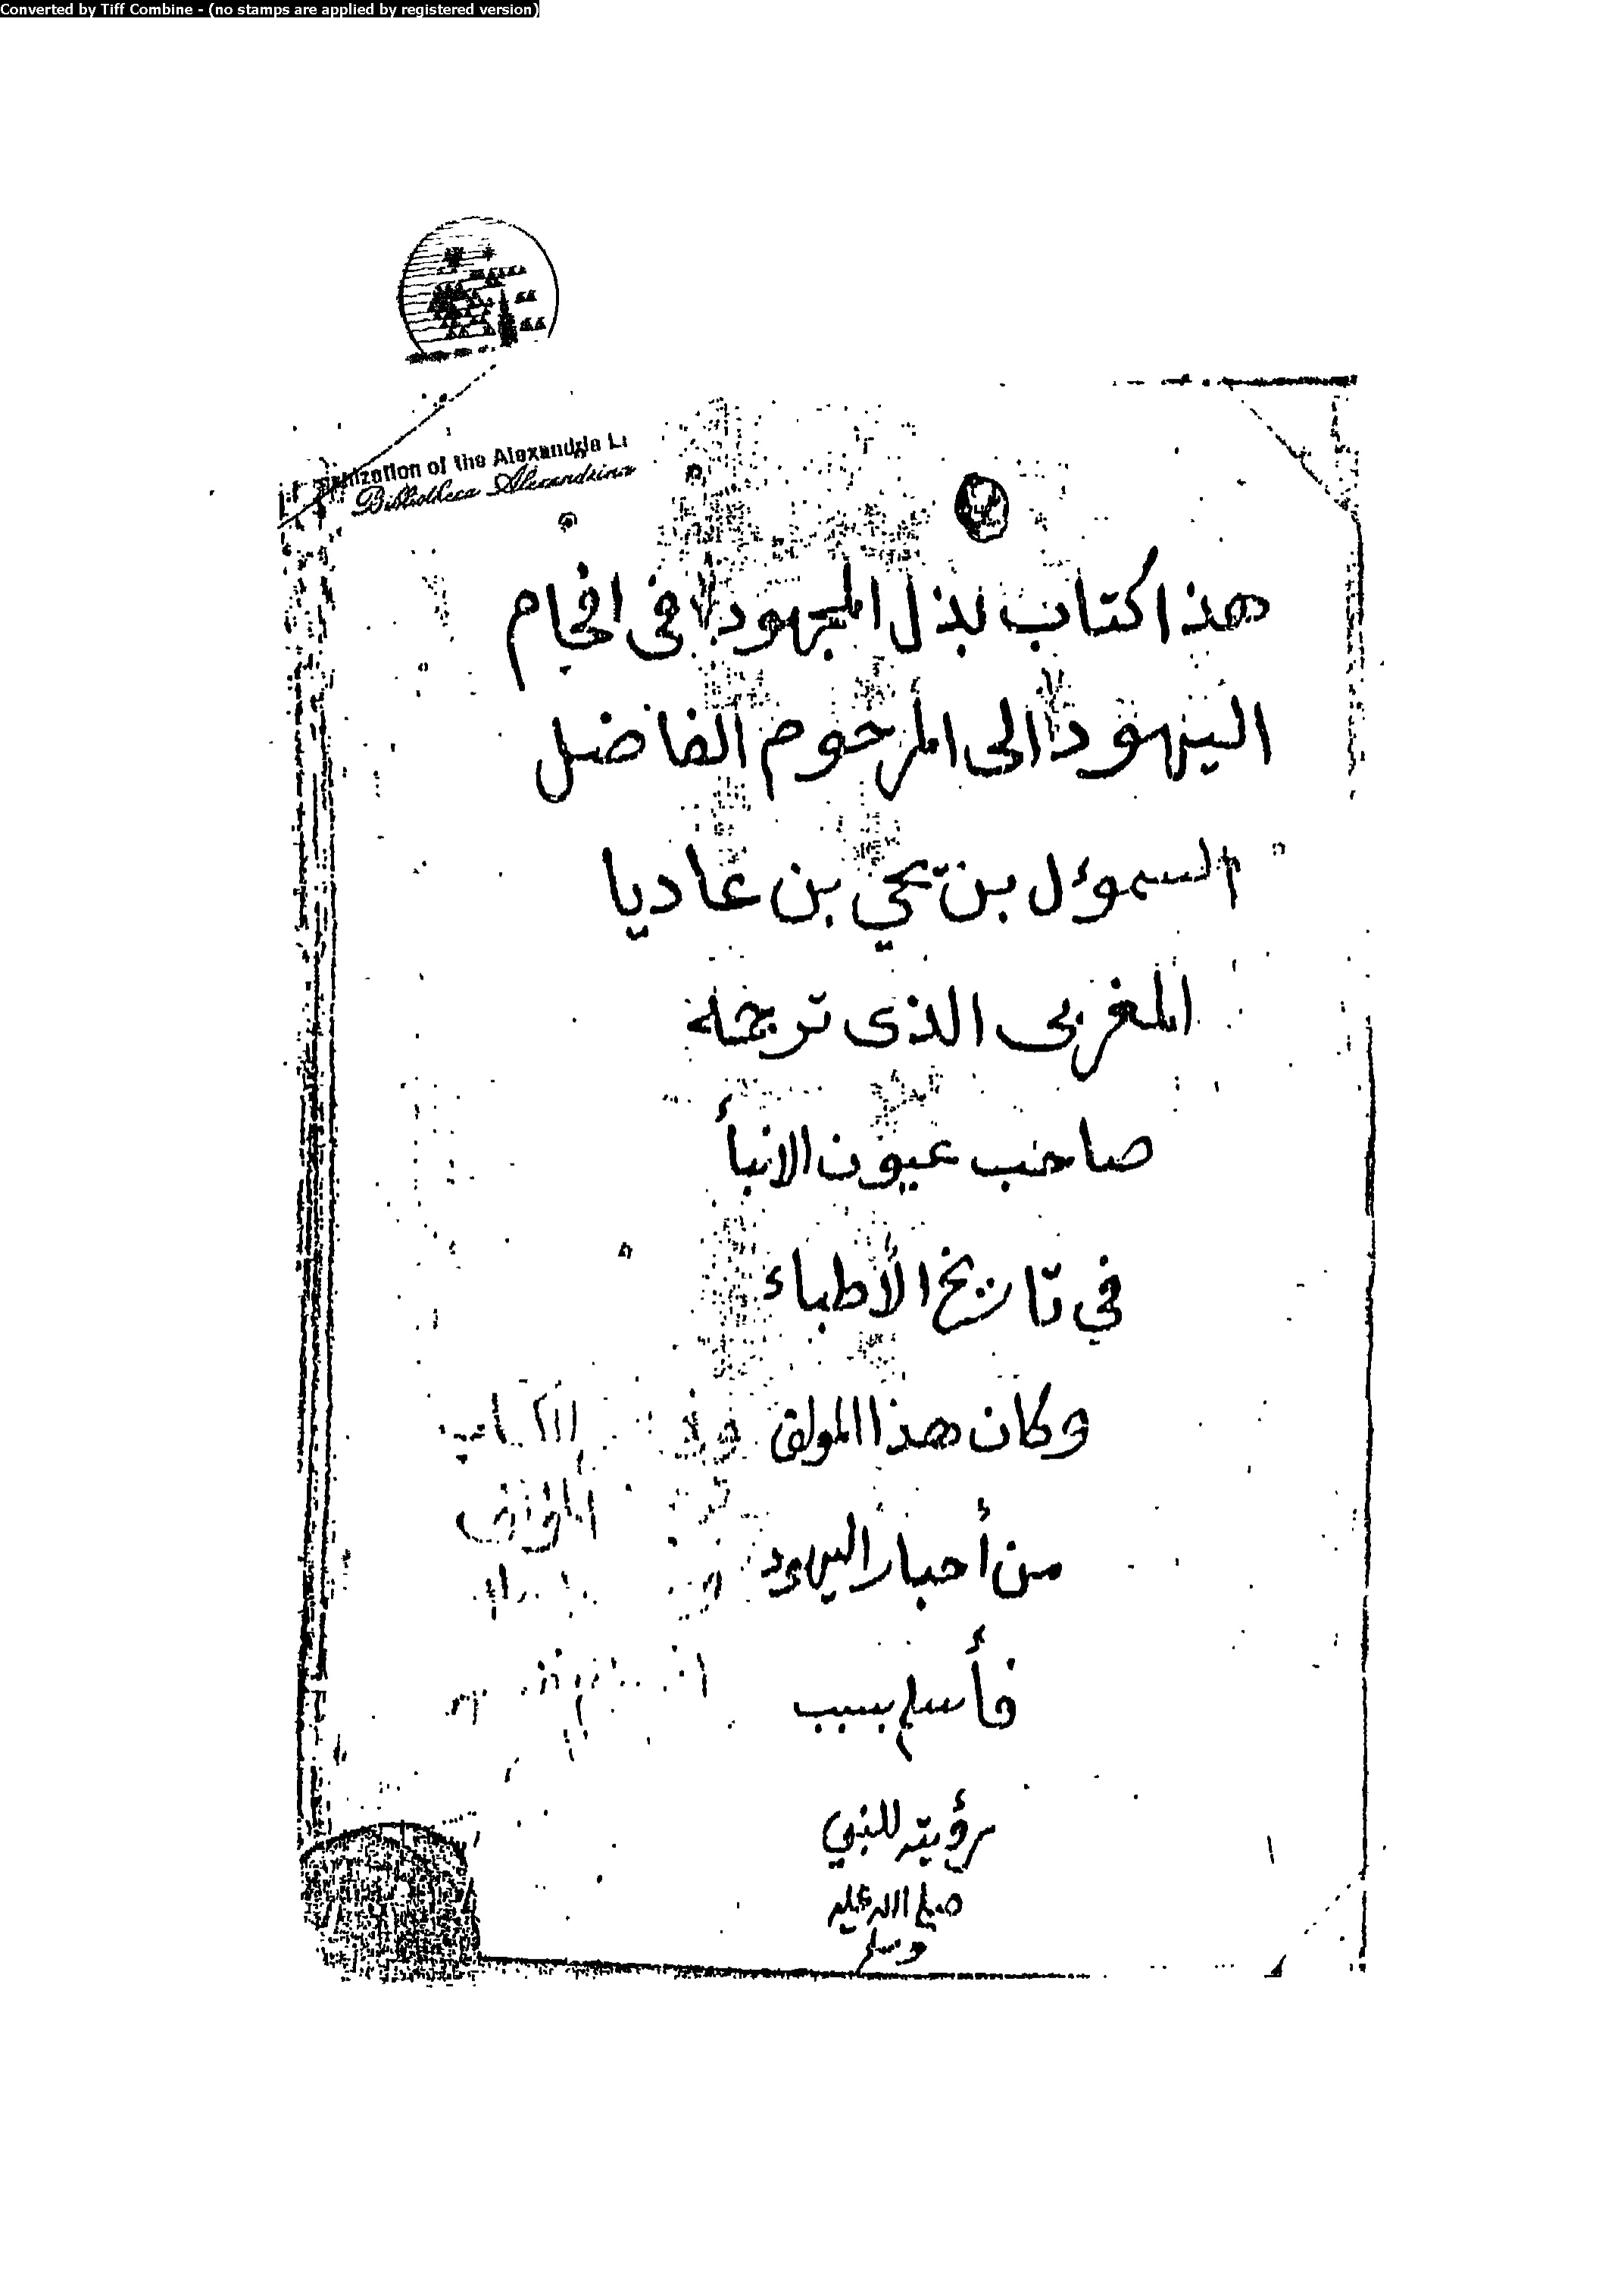 Converted by Tiff Combine - (no stamps are applied by registered version)
of the Alexandria
Bibliotheca Alexandrina
هذا كتاب بذل المجهود في افحام
اليهود الى المرحوم الفاضل
السموءل بن يحي بن عاديا
المغربى الذى ترجمه
صاحب عيون الانبأ
في تاريخ الأطباء
وكان هذا المولف
من أحبار اليهود
فأسلم بسبب
رؤيته للنبي
صلى الله عليه
وسلم